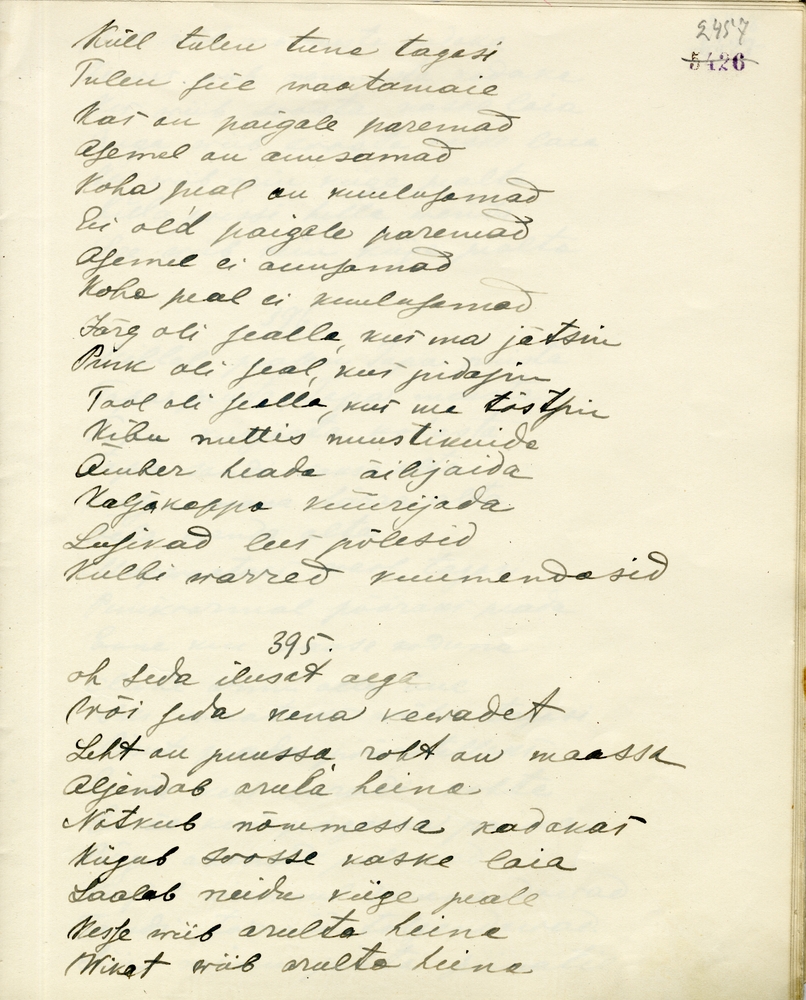 2457
5426
Küll tulen tuna tagasi
Tulen siie waatamaie
Kas on paigale paremad
Asemel on ausamad
Koha peal on kuulusamad
Ei old paigale paremad
Asemel ei ausamad
Koha peal ei kuulusamad
Järg oli sealla, kus ma jätsin
Pink oli seal, kus pidasin
Tool oli sealla, kus ma tõstsin
Kibu nuttis nuustikuida
Ämber heada äilijaida
Kaljakappa küürijada
Lusikad lees põlesid
Kulbi warred kuumendasid
395.
oh seda ilusat aega
Wõi seda kena kewadet
Leht on puussa, roht on maassa
Aljendab arula heina
Nõtkub nõmmessa kadakas
Kiigub soosse kaske laia
Laalab neidu kiige peale
Kesse wiib arulta heina
Wikat wiib arulta heina